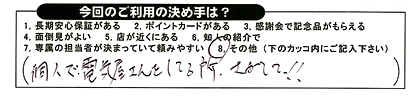 今回のご利用の決め手は?
1, 長期安心保証がある 2, ポイントカードがある 3, 感謝会で記念品がもらえる
4, 面倒見がよい 5, 店が近くにある 6, 知人の紹介で
7, 専属の担当者が決まっていて頼みやすい 8, その他(下のカッコ内にご記入下さい)
(個人で電気屋さんをしてる所、さがして!!)